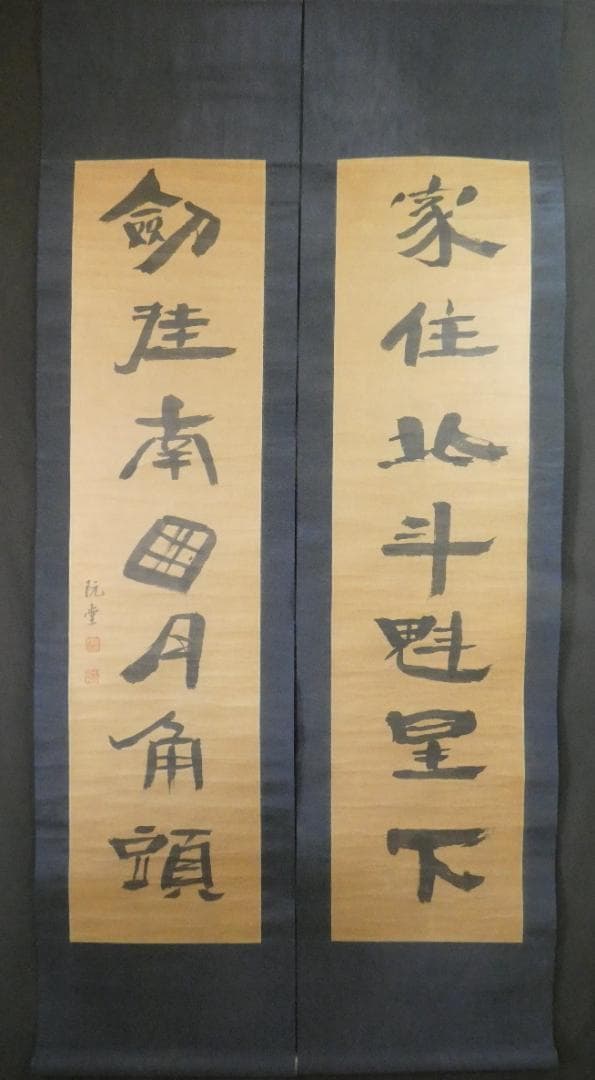 家住北斗魁星下
劒挂南囪月角頭
阮堂